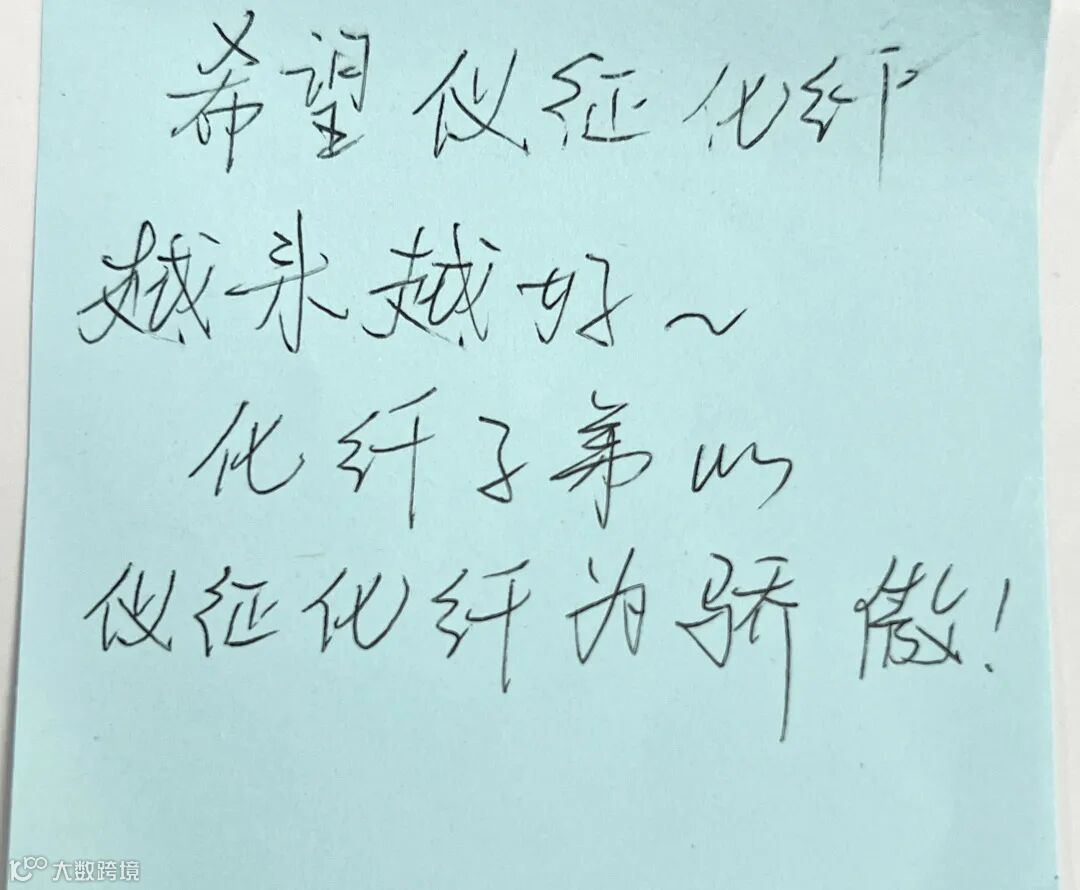 希望仪征化纤
越来越好~
化纤子弟以
仪征化纤为骄傲!
大数跨境